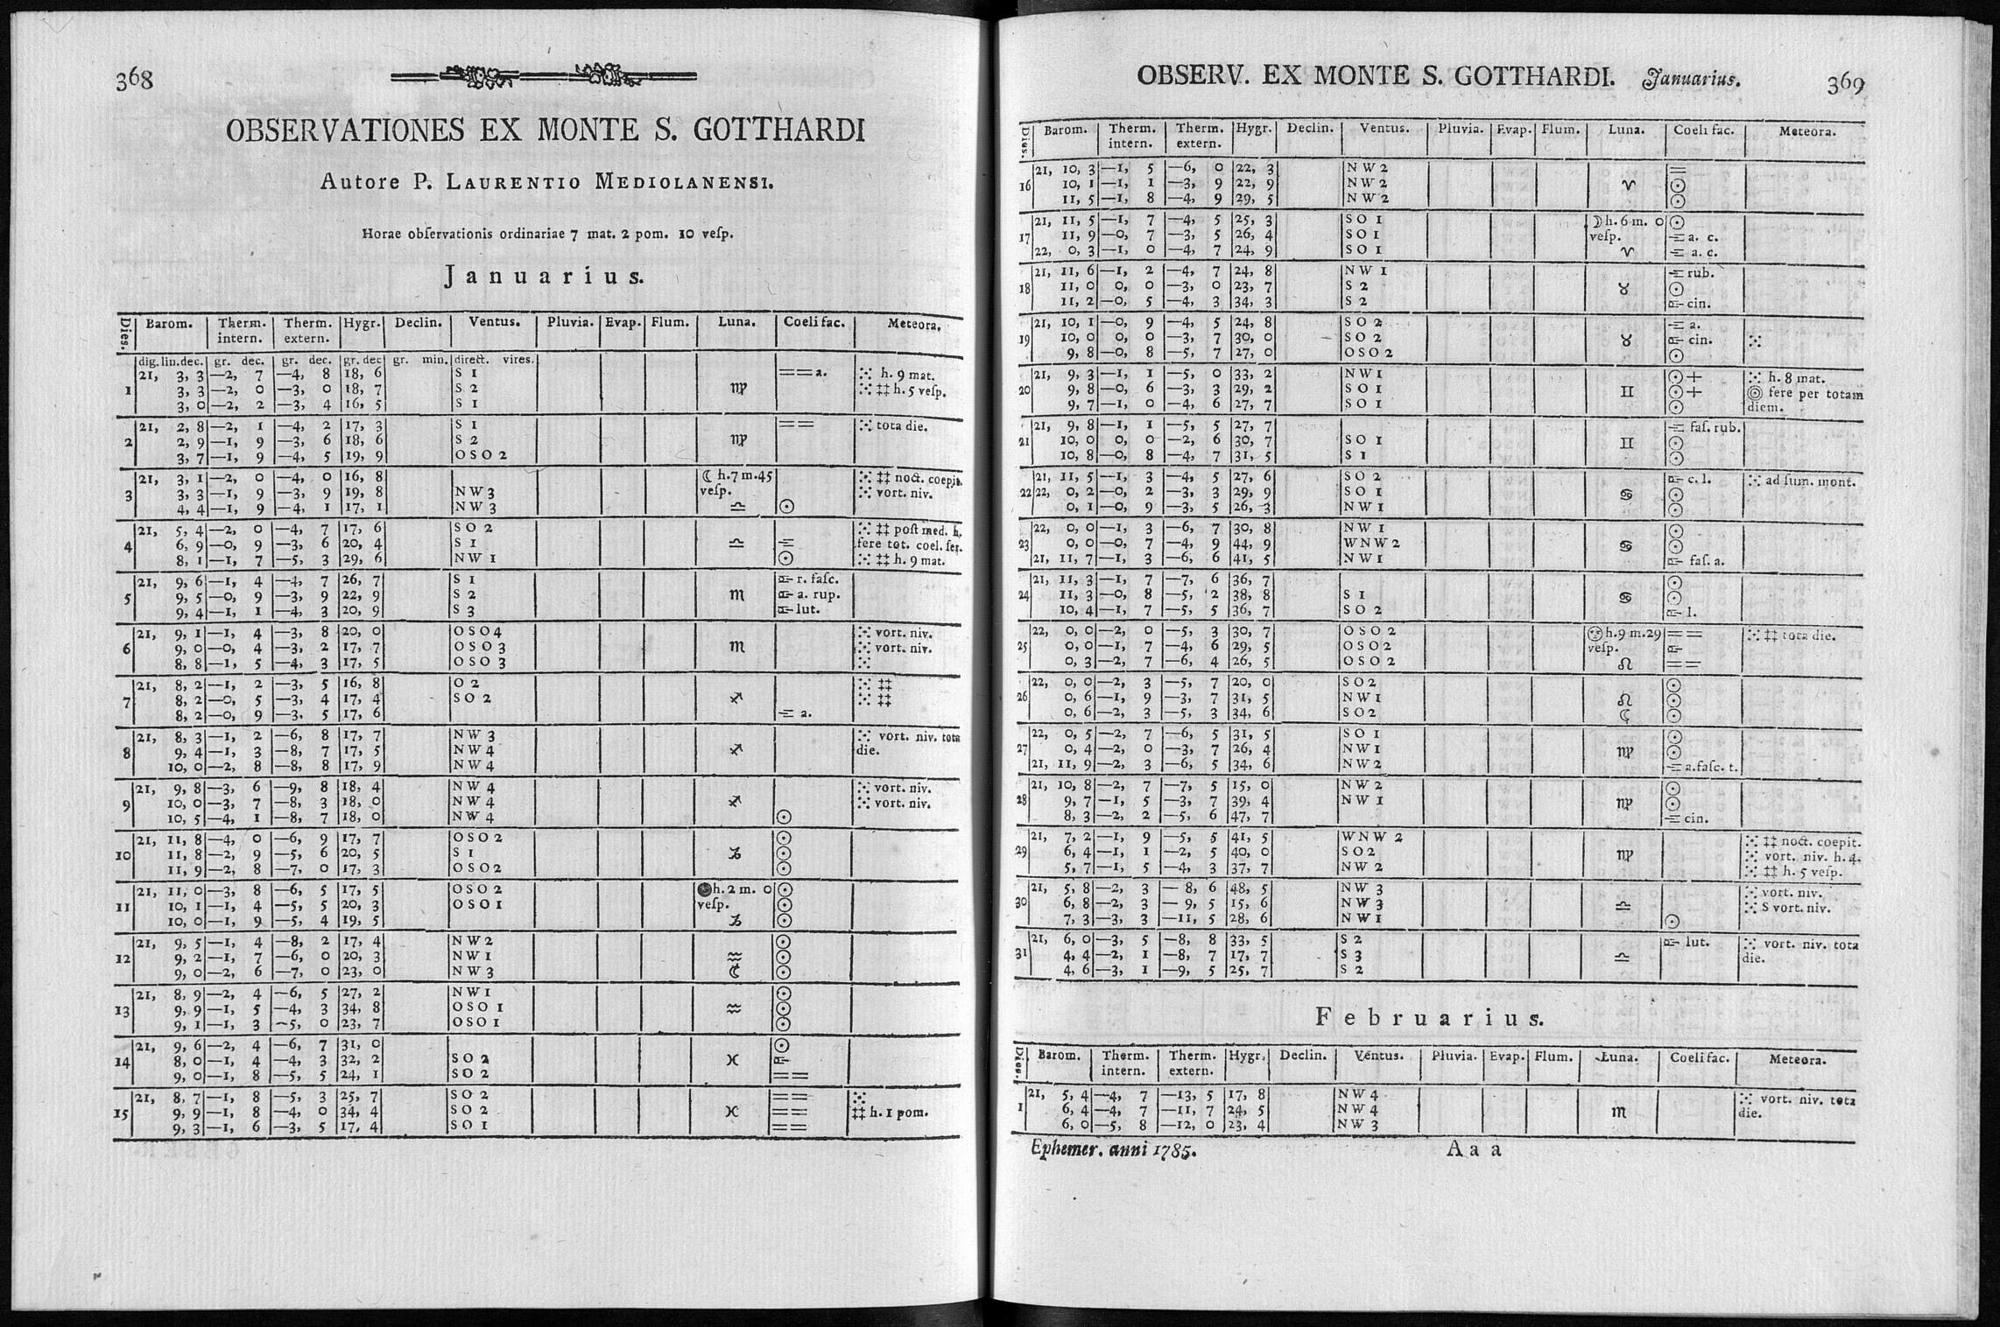 368
OBSERVATIONES EX MONTE S. GOTTHARDI
Autore P. LAURENTIO MEDIOLANENSI.
Horae obſervationis ordinariae 7 mat. 2 pom. 10 veſp.
Januarius.
Dies. Barom. Therm. intern. Therm. extern. Hygr. Declin. Ventus. Pluvia. Evap. Flum. Luna. Coeli fac. Meteora.
dig. lin. dec. gr. dec. gr. dec. gr. dec gr. min. direct. vires.
21, 3, 3 —2, 7 —4, 8 18, 6 S 1 ==a. ⁙ h. 9 mat.
1 3, 3 —2, 0 —3, 0 18, 7 S 2 ♍ ⁙ ‡‡ h. 5 veſp.
3, 0 —2, 2 —3, 4 16, 5 S 1
21, 2, 8 —2, 1 —4, 2 17, 3 S 1 == ⁙ tota die.
2 2, 9 —1, 9 —3, 6 18, 6 S 2 ♍
3, 7 —1, 9 —4, 5 19, 9 OSO 2
21, 3, 1 —2, 0 —4, 0 16, 8 ☾ h. 7 m. 45 ⁙ ‡‡ noct. coepit.
3 3, 3 —1, 9 —3, 9 19, 8 NW 3 veſp. ⁙ vort. niv.
4, 4 —1, 9 —4, 1 17, 1 NW 3 ♎ ☉
21, 5, 4 —2, 0 —4, 7 17, 6 SO 2 ⁙ ‡‡ poſt med. h.
4 6, 9 —0, 9 —3, 6 20, 4 S 1 ♎ fere tot. coel. ſer.
8, 1 —1, 7 —5, 3 29, 6 NW 1 ☉ ⁙ ‡‡ h. 9 mat.
21, 9, 6 —1, 4 —4, 7 26, 7 S 1 r. faſc.
5 9, 5 —0, 9 —3, 9 22, 9 S 2 ♏ a. rup.
9, 4 —1, 1 —4, 3 20, 9 S 3 lut.
21, 9, 1 —1, 4 —3, 8 20, 0 OSO4 ⁙ vort. niv.
6 9, 0 —0, 4 —3, 2 17, 7 OSO 3 ♏ ⁙ vort. niv.
8, 8 —1, 5 —4, 3 17, 5 OSO 3 ⁙
21, 8, 2 —1, 2 —3, 5 16, 8 O 2 ⁙ ‡‡
7 8, 2 —0, 5 —3, 4 17, 4 SO 2 ♐ ⁙ ‡‡
8, 2 —0, 9 —3, 5 17, 6 a.
21, 8, 3 —1, 2 —6, 8 17, 7 NW 3 ⁙ vort. niv. tota
8 9, 4 —1, 3 —8, 7 17, 5 NW 4 ♐ die.
10, 0 —2, 8 —8, 8 17, 9 NW 4
21, 9, 8 —3, 6 —9, 8 18, 4 NW 4 ⁙ vort. niv.
9 10, 0 —3, 7 —8, 3 18, 0 NW 4 ♐ ⁙ vort. niv.
10, 5 —4, 1 —8, 7 18, 0 NW 4 ☉
21, 11, 8 —4, 0 —6, 9 17, 7 OSO 2 ☉
10 11, 8 —2, 9 —5, 6 20, 5 S 1 ♑ ☉
11, 9 —2, 8 —7, 0 17, 3 OSO2 ☉
21, 11, 0 —3, 8 —6, 5 17, 5 OSO 2 ● h. 2 m. 0 ☉
11 10, 1 —1, 4 —5, 5 20, 3 OSO1 veſp. ☉
10, 0 —1, 9 —5, 4 19, 5 ♑ ☉
21, 9, 5 —1, 4 —8, 2 17, 4 NW2 ☉
12 9, 2 —1, 7 —6, 0 20, 3 NW1 ♒ ☉
9, 0 —2, 6 —7, 0 23, 0 NW3 ☉
21, 8, 9 —2, 4 —6, 5 27, 2 NW1 ☉
13 9, 9 —1, 5 —4, 3 34, 8 OSO 1 ♒ ☉
9, 1 —1, 3 —5, 0 23, 7 OSO 1 ☉
21, 9, 6 —2, 4 —6, 7 31, 0 ☉
14 8, 0 —1, 4 —4, 3 32, 2 SO 2 ♓
9, 0 —1, 8 —5, 5 24, 1 SO 2 ==
21, 8, 7 —1, 8 —5, 3 25, 7 SO 2 == ⁙
15 9, 9 —1, 8 —4, 0 34, 4 SO 2 ♓ == ‡‡ h. 1 pom.
9, 3 —1, 6 —3, 5 17, 4 SO 1 ==
OBSERV. EX MONTE S. GOTTHARDI. Januarius. 369
Dies. Barom. Therm. intern. Therm. extern. Hygr. Declin. Ventus. Pluvia. Evap. Flum. Luna. Coeli fac. Meteora.
21, 10, 3 —1, 5 —6, 0 22, 3 NW2 =
16 10, 1 —1, 1 —3, 9 22, 9 NW2 ♈ ☉
11, 5 —1, 8 —4, 9 29, 5 NW2 ☉
21, 11, 5 —1, 7 —4, 5 25, 3 SO 1 ☽ h. 6 m. 0 ☉
17 11, 9 —0, 7 —3, 5 26, 4 SO 1 veſp. a. c.
22, 0, 3 —1, 0 —4, 7 24, 9 SO 1 ♈ a. c.
21, 11, 6 —1, 2 —4, 7 24, 8 NW 1 rub.
18 11, 0 0, 0 —3, 0 23, 7 S 2 ♉ ☉
11, 2 —0, 5 —4, 3 34, 3 S 2 cin.
21, 10, 1 —0, 9 —4, 5 24, 8 SO 2 a.
19 10, 0 0, 0 —3, 7 30, 0 SO 2 ♉ cin. ⁙
9, 8 —0, 8 —5, 7 27, 0 OSO2 ☉
21, 9, 3 —1, 1 —5, 0 33, 2 NW1 ☉+ ⁙ h. 8 mat.
20 9, 8 —0, 6 —3, 3 29, 2 SO 1 ♊ ☉+ ◎ fere per totam
9, 7 —1, 0 —4, 6 27, 7 SO 1 ☉ diem.
21, 9, 8 —1, 1 —5, 5 27, 7 faſ. rub.
21 10, 0 0, 0 —2, 6 30, 7 SO 1 ♊ ☉
10, 8 —0, 8 —4, 7 31, 5 S 1 ☉
21, 11, 5 —1, 3 —4, 5 27, 6 SO 2 c. l. ⁙ ad ſum. mont.
22 22, 0, 2 —0, 2 —3, 3 29, 9 SO 1 ♋ ☉
0, 1 —0, 9 —3, 5 26, 3 NW1 ☉
22, 0, 0 —1, 3 —6, 7 30, 8 NW 1 ☉
23 0, 0 —0, 7 —4, 9 44, 9 WNW2 ♋ ☉
21, 11, 7 —1, 3 —6, 6 41, 5 NW1 faſ. a.
21, 11, 3 —1, 7 —7, 6 36, 7 ☉
24 11, 3 —0, 8 —5, 2 38, 8 S 1 ♋ ☉
10, 4 —1, 7 —5, 5 36, 7 SO 2 l.
22, 0, 0 —2, 0 —5, 3 30, 7 OSO 2 h. 9 m. 29 == ⁙ ‡‡ tota die.
25 0, 0 —1, 7 —4, 6 29, 5 OSO2 veſp.
0, 3 —2, 7 —6, 4 26, 5 OSO2 ♌ ==
22, 0, 0 —2, 3 —5, 7 20, 0 SO2 ☉
26 0, 6 —1, 9 —3, 7 31, 5 NW1 ♌ ☉
0, 6 —2, 3 —5, 3 34, 6 SO2 ☉
22, 0, 5 —2, 7 —6, 5 31, 5 SO 1 ☉
27 0, 4 —2, 0 —3, 7 26, 4 NW1 ♍ ☉
21, 11, 9 —2, 3 —6, 5 34, 6 NW2 a. faſc. t.
21, 10, 8 —2, 7 —7, 5 15, 0 NW2 ☉
28 9, 7 —1, 5 —3, 7 39, 4 NW1 ♍ ☉
8, 3 —2, 2 —5, 6 47, 7 cin.
21, 7, 2 —1, 9 —5, 5 41, 5 WNW 2 ⁙ ‡‡ noct. coepit.
29 6, 4 —1, 1 —2, 5 40, 0 SO2 ♍ ⁙ vort. niv. h. 4.
5, 7 —1, 5 —4, 3 37, 7 NW 2 ⁙ ‡‡ h. 5 veſp.
21, 5, 8 —2, 3 —8, 6 48, 5 NW 3 ⁙ vort. niv.
30 6, 8 —2, 3 —9, 5 15, 6 NW3 ♎ ⁙ S vort. niv.
7, 3 —3, 3 —11, 5 28, 6 NW1 ☉
21, 6, 0 —3, 5 —8, 8 33, 5 S 2 lut. ⁙ vort. niv. tota
31 4, 4 —2, 1 —8, 7 17, 7 S 3 ♎ die.
4, 6 —3, 1 —9, 5 25, 7 S 2
Februarius.
Dies. Barom. Therm. intern. Therm. extern. Hygr. Declin. Ventus. Pluvia. Evap. Flum. Luna. Coeli fac. Meteora.
21, 5, 4 —4, 7 —13, 5 17, 8 NW4 ⁙ vort. niv. tota
1 6, 4 —4, 7 —11, 7 24, 5 NW4 ♏ die.
6, 0 —5, 8 —12, 0 23, 4 NW 3
Ephemer. anni 1785. Aaa